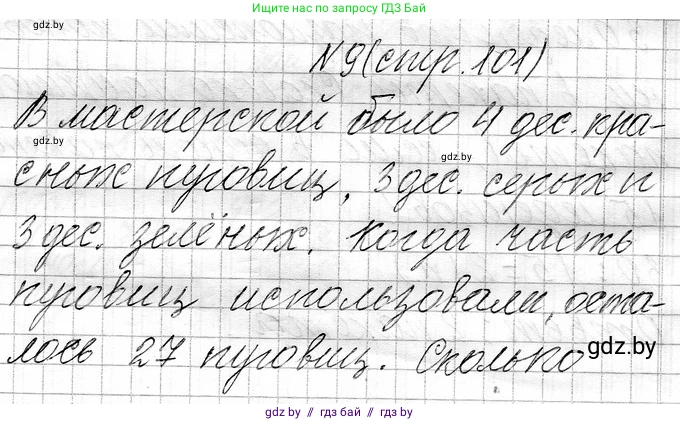 Нашли нас по запросу ГДЗ Бай
gdz.by
№9(стр.101)
В мастерской было 4 дес. кра-
gdz.by
сных пуговиц, 3 дес. серых и
3 дес. зелёных. Когда часть
пуговиц использовали, оста-
лось 27 пуговиц. Сколько
gdz.by
gdz.by // гдз бай // гдз by